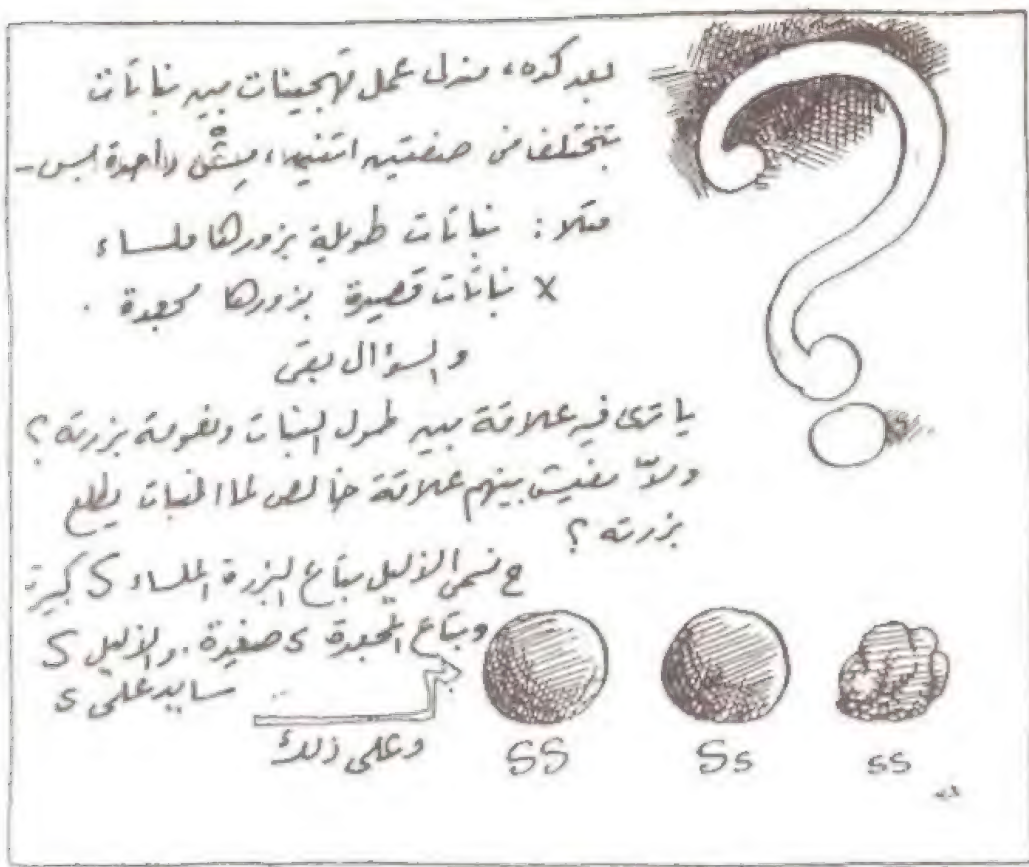 بعد كده، مندل عمل تهجينات بين نباتات
بتختلف فى صفتين اتنين، مِشْ واحدة بس -
مثلا: نباتات طويلة بزورها ملساء
X نباتات قصيرة بزورها مجعدة .
والسؤال بقى
يا ترى فيه علاقة بين طول النبات ونعومة بزرته ؟
ولاّ مفيش بينهم علاقة خالص لما النبات يطلع
بزرته ؟
ح نسمى الأليل بتاع البزرة الملساء S كبيرة
وبتاع المجعدة s صغيرة . والأليل S
سايد على s
وعلى ذلك
SS Ss ss